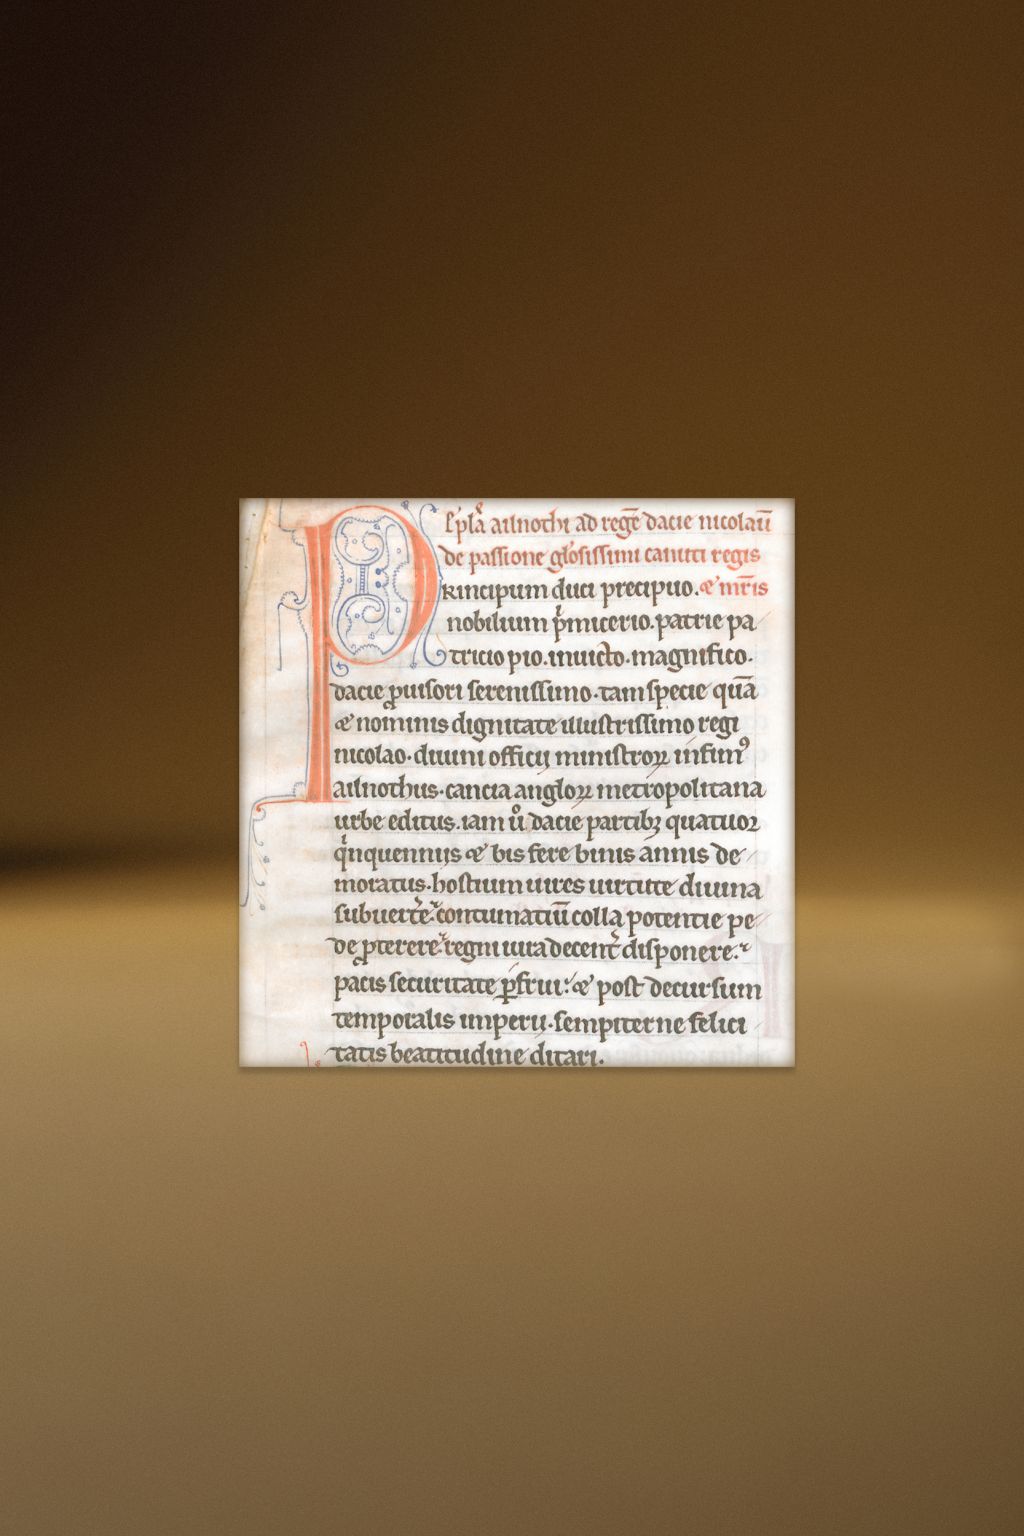 Ep̄la ailnothi ad regē dacie nicolaū
de passione gl'osissimi canuti regis
Principum duci precipuo. & mr̄is
nobilium pͥmicerio. patrie pa
tricio pio. inuicto. magnifico.
dacie ꝓuisori serenissimo. tam specie quā
& nominis dignitate illustrissimo regi
nicolao. diuini officij ministroꝝ infimꝰ
ailnothus. cancia angloꝝ metropolitana
urbe editus. iam uͦ dacie partibꝫ quatuor
qͥnquennijs & bis fere binis annis de
moratus. hostium uires uirtute diuina
subuert̄e. contumatiū colla potentie pe
de ꝓterere. regni iura decent̄ disponere.
pacis securitate ꝑfrui. & post decursum
temporalis imperii. sempiterne felici
tatis beatitudine ditari.